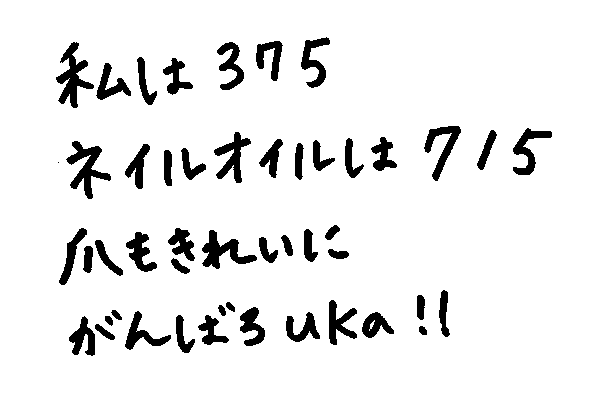 私は375
ネイルオイルは715
爪もきれいに
がんばろuka!!